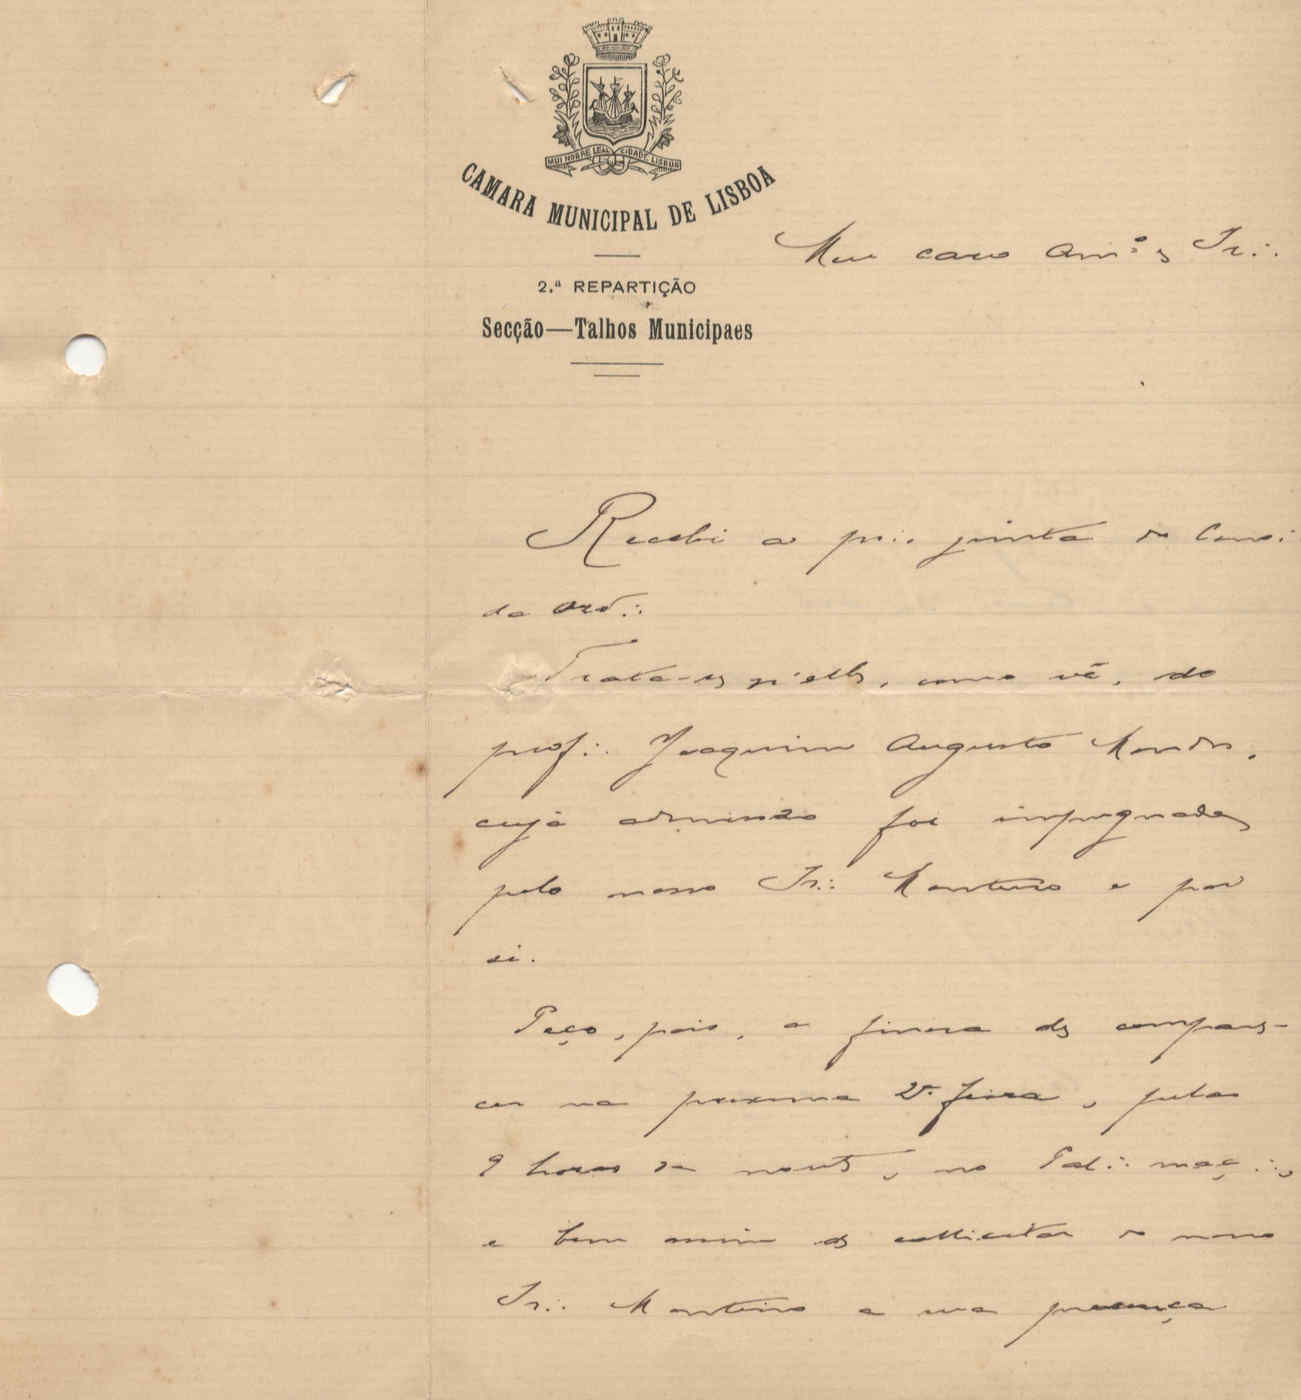 MUI NOBRE LEAL CIDADE LISBOA
CAMARA MUNICIPAL DE LISBOA
2.ª REPARTIÇÃO
Secção—Talhos Municipaes
Meu caro Am.º e Ir∴
Recebi a pr∴ junta do Cons∴
da Ord∴
Trata-se n'ella, como vê, do
prof∴ Joaquim Augusto
cuja admissão foi impugnada
pelo nosso Ir∴ Monteiro e por
si.
Peço, pois, a fineza de compare-
cer na proxima 2ª feira, pelas
9 horas da noute, no Pal∴ maç∴,
e bem assim de sollicitar do nosso
Ir∴ Monteiro a sua presença